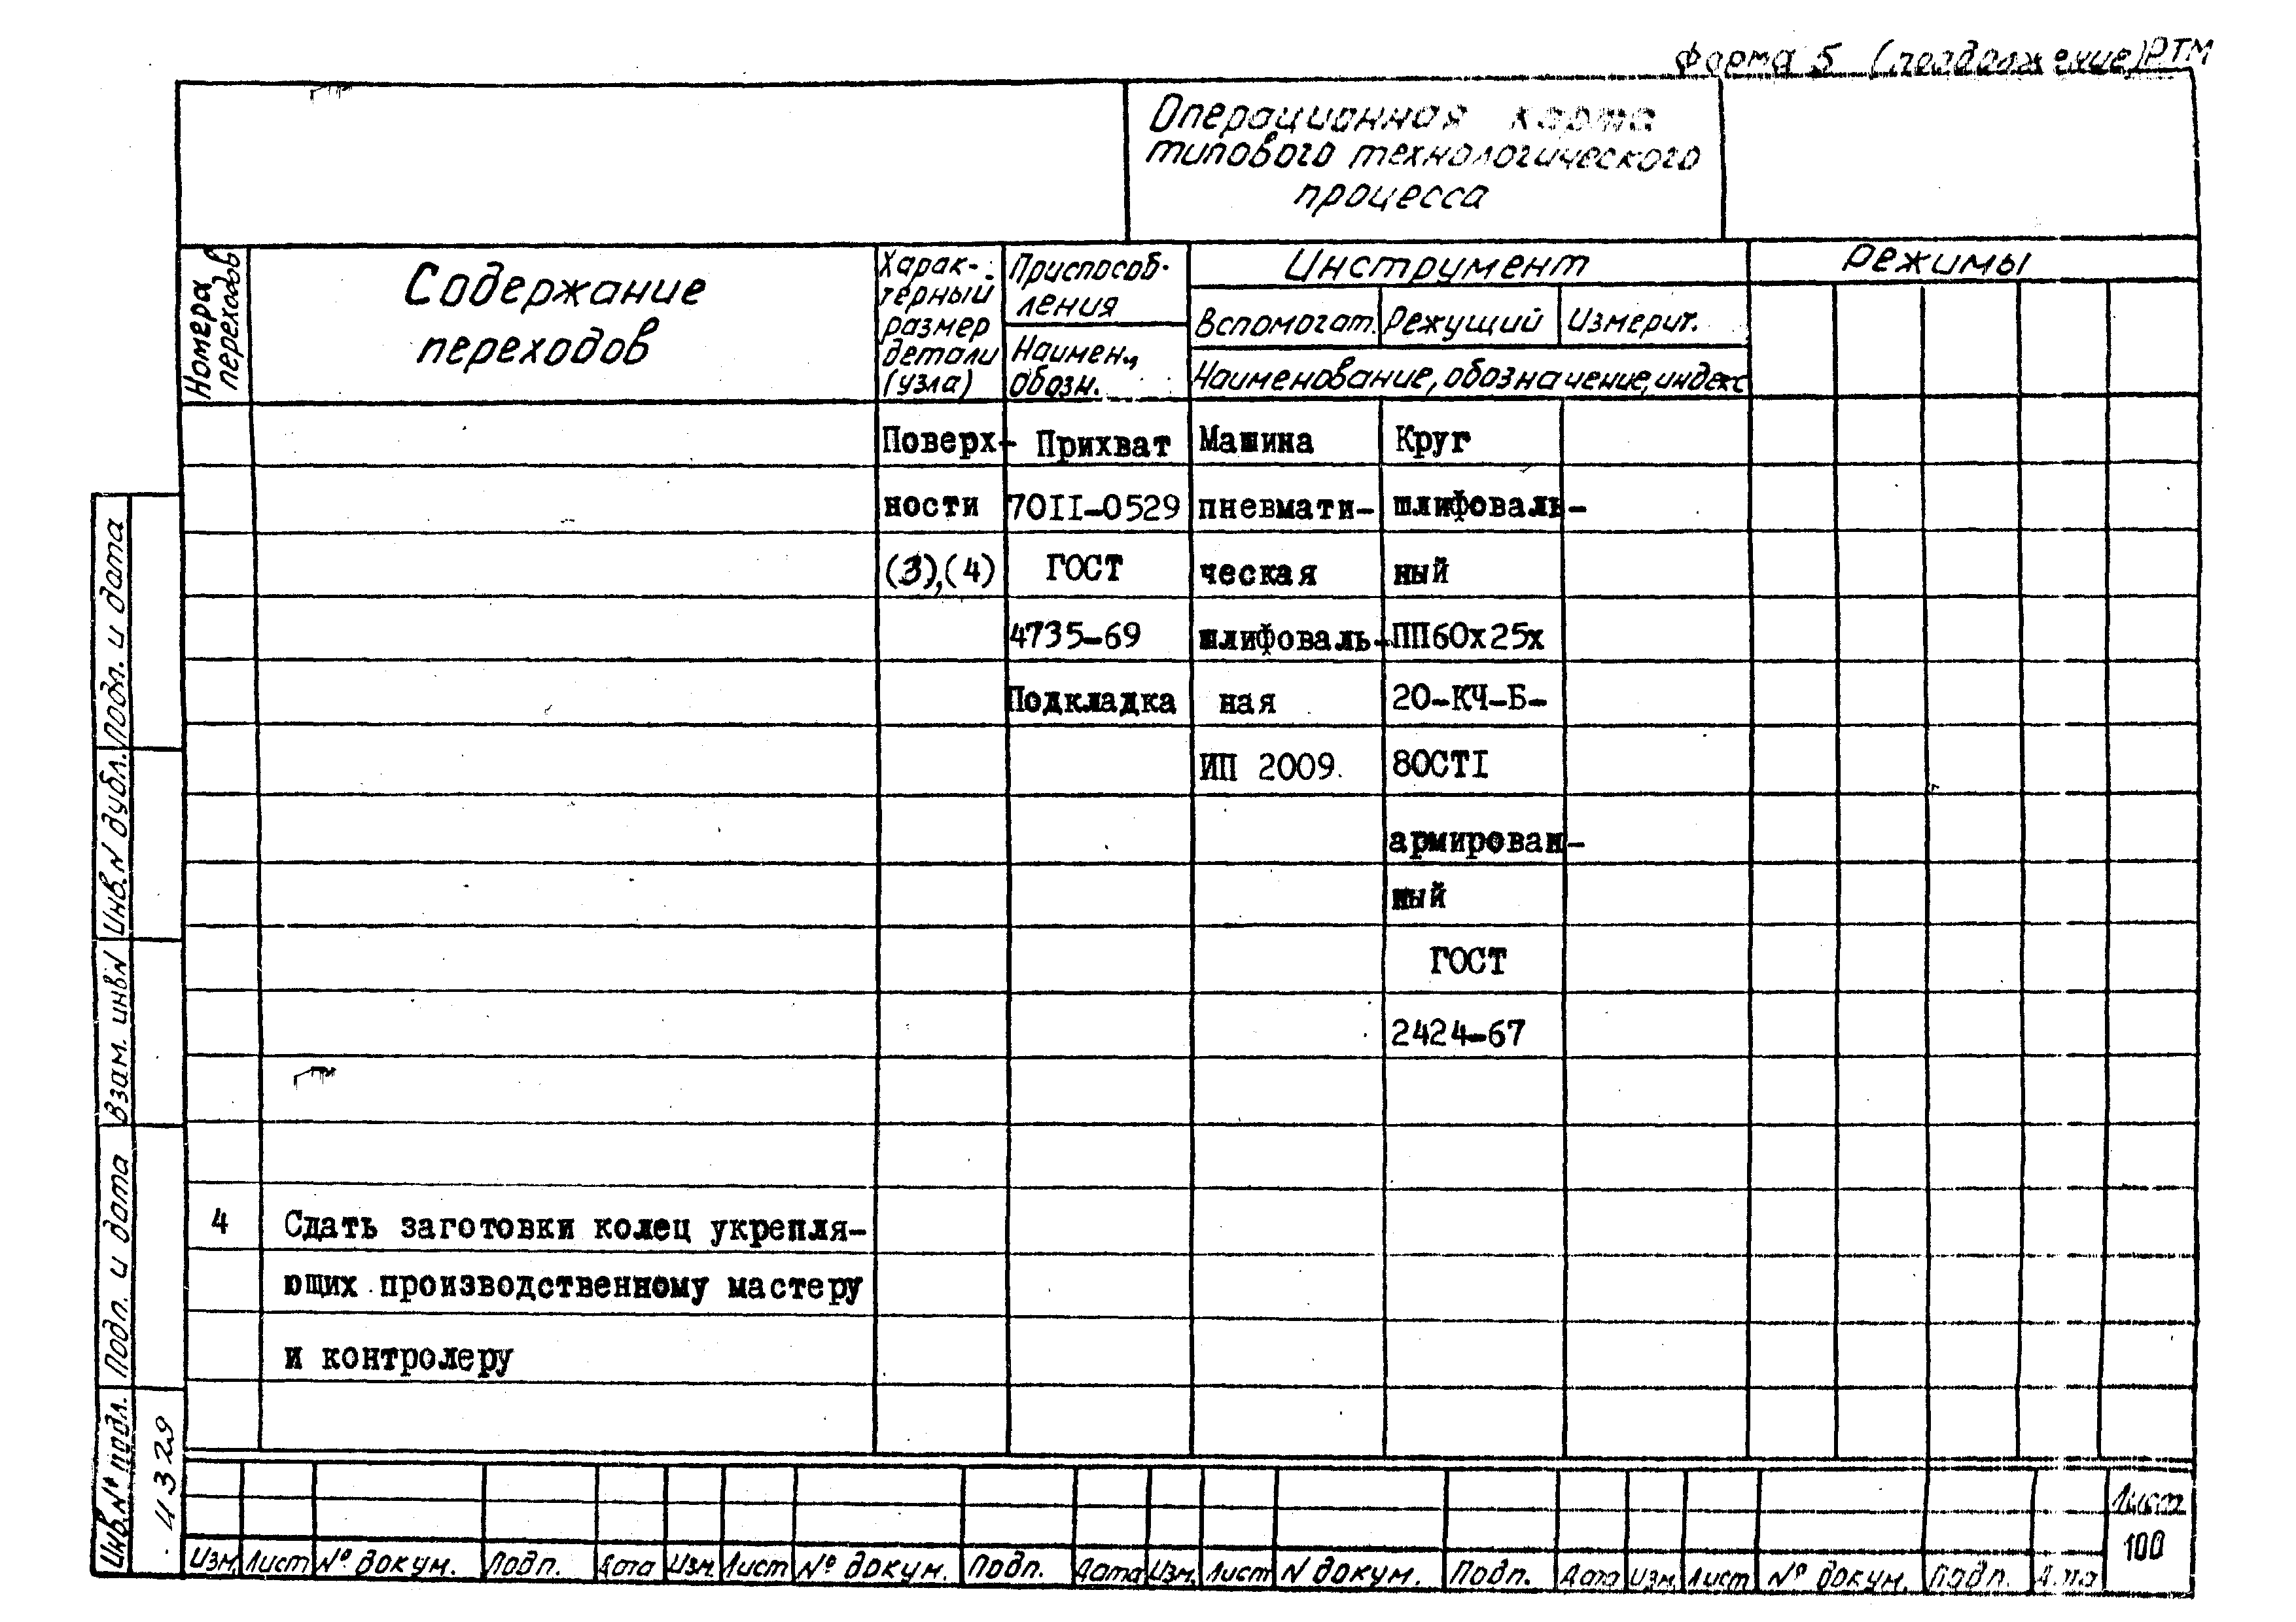 Форма 5 (продолжение) РТМ
Операционная карта
типового технологического
процесса
Номера
переходов
Содержание
переходов
Харак-
терный
размер
детали
(узла)
Приспособ-
ления
Наимен.,
обозн.
Инструмент
Вспомогат. Режущий Измерит.
Наименование, обозначение, индекс
Режимы
Поверх- Прихват Машина Круг
ности 70II-0529 пневмати- шлифоваль-
(3),(4) ГОСТ ческая ный
4735-69 шлифоваль- ПП60х25х
Подкладка ная 20-КЧ-Б-
ИП 2009. 80СТI
армирован-
ный
ГОСТ
2424-67
4 Сдать заготовки колец укрепля-
ющих производственному мастеру
и контролеру
Подп. и дата
Инв. N дубл.
Взам. инв N
Подп. и дата
Инв. № подл.
4329
Изм. Лист № докум. Подп. Дата Изм. Лист № докум. Подп. Дата Изм. Лист N докум. Подп. Дата Изм. Лист № докум. Подп. Дата
Лист
100